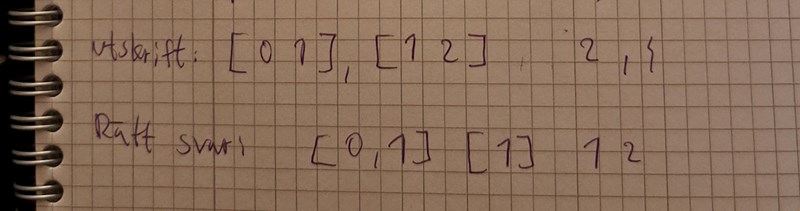 utskrift: [0 1], [1 2], 2,
Rätt svar: [0,1] [1] 1 2